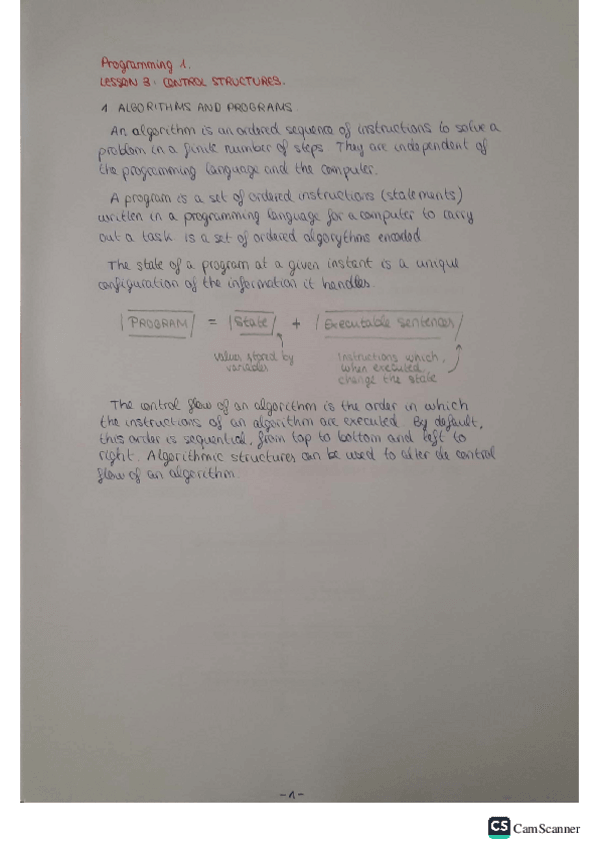 Programming 1.
LESSON 3: CONTROL STRUCTURES.
1 ALGORITHMS AND PROGRAMS
An algorithm is an ordered sequence of instructions to solve a
problem in a finite number of steps. They are independent of
the programming language and the computer.
A program is a set of ordered instructions (statements)
written in a programming language for a computer to carry
out a task. is a set of ordered algorythms encoded
The state of a program at a given instant is a unique
configuration of the information it handles.
PROGRAM = State + Executable sentences
values stored by
variables
Instructions which,
when executed,
change the state
The control flow of an algorithm is the order in which
the instructions of an algorithm are executed. By default,
this order is sequential, from top to bottom and left to
right. Algorithmic structures can be used to alter de control
flow of an algorithm.
-1-
CS CamScanner